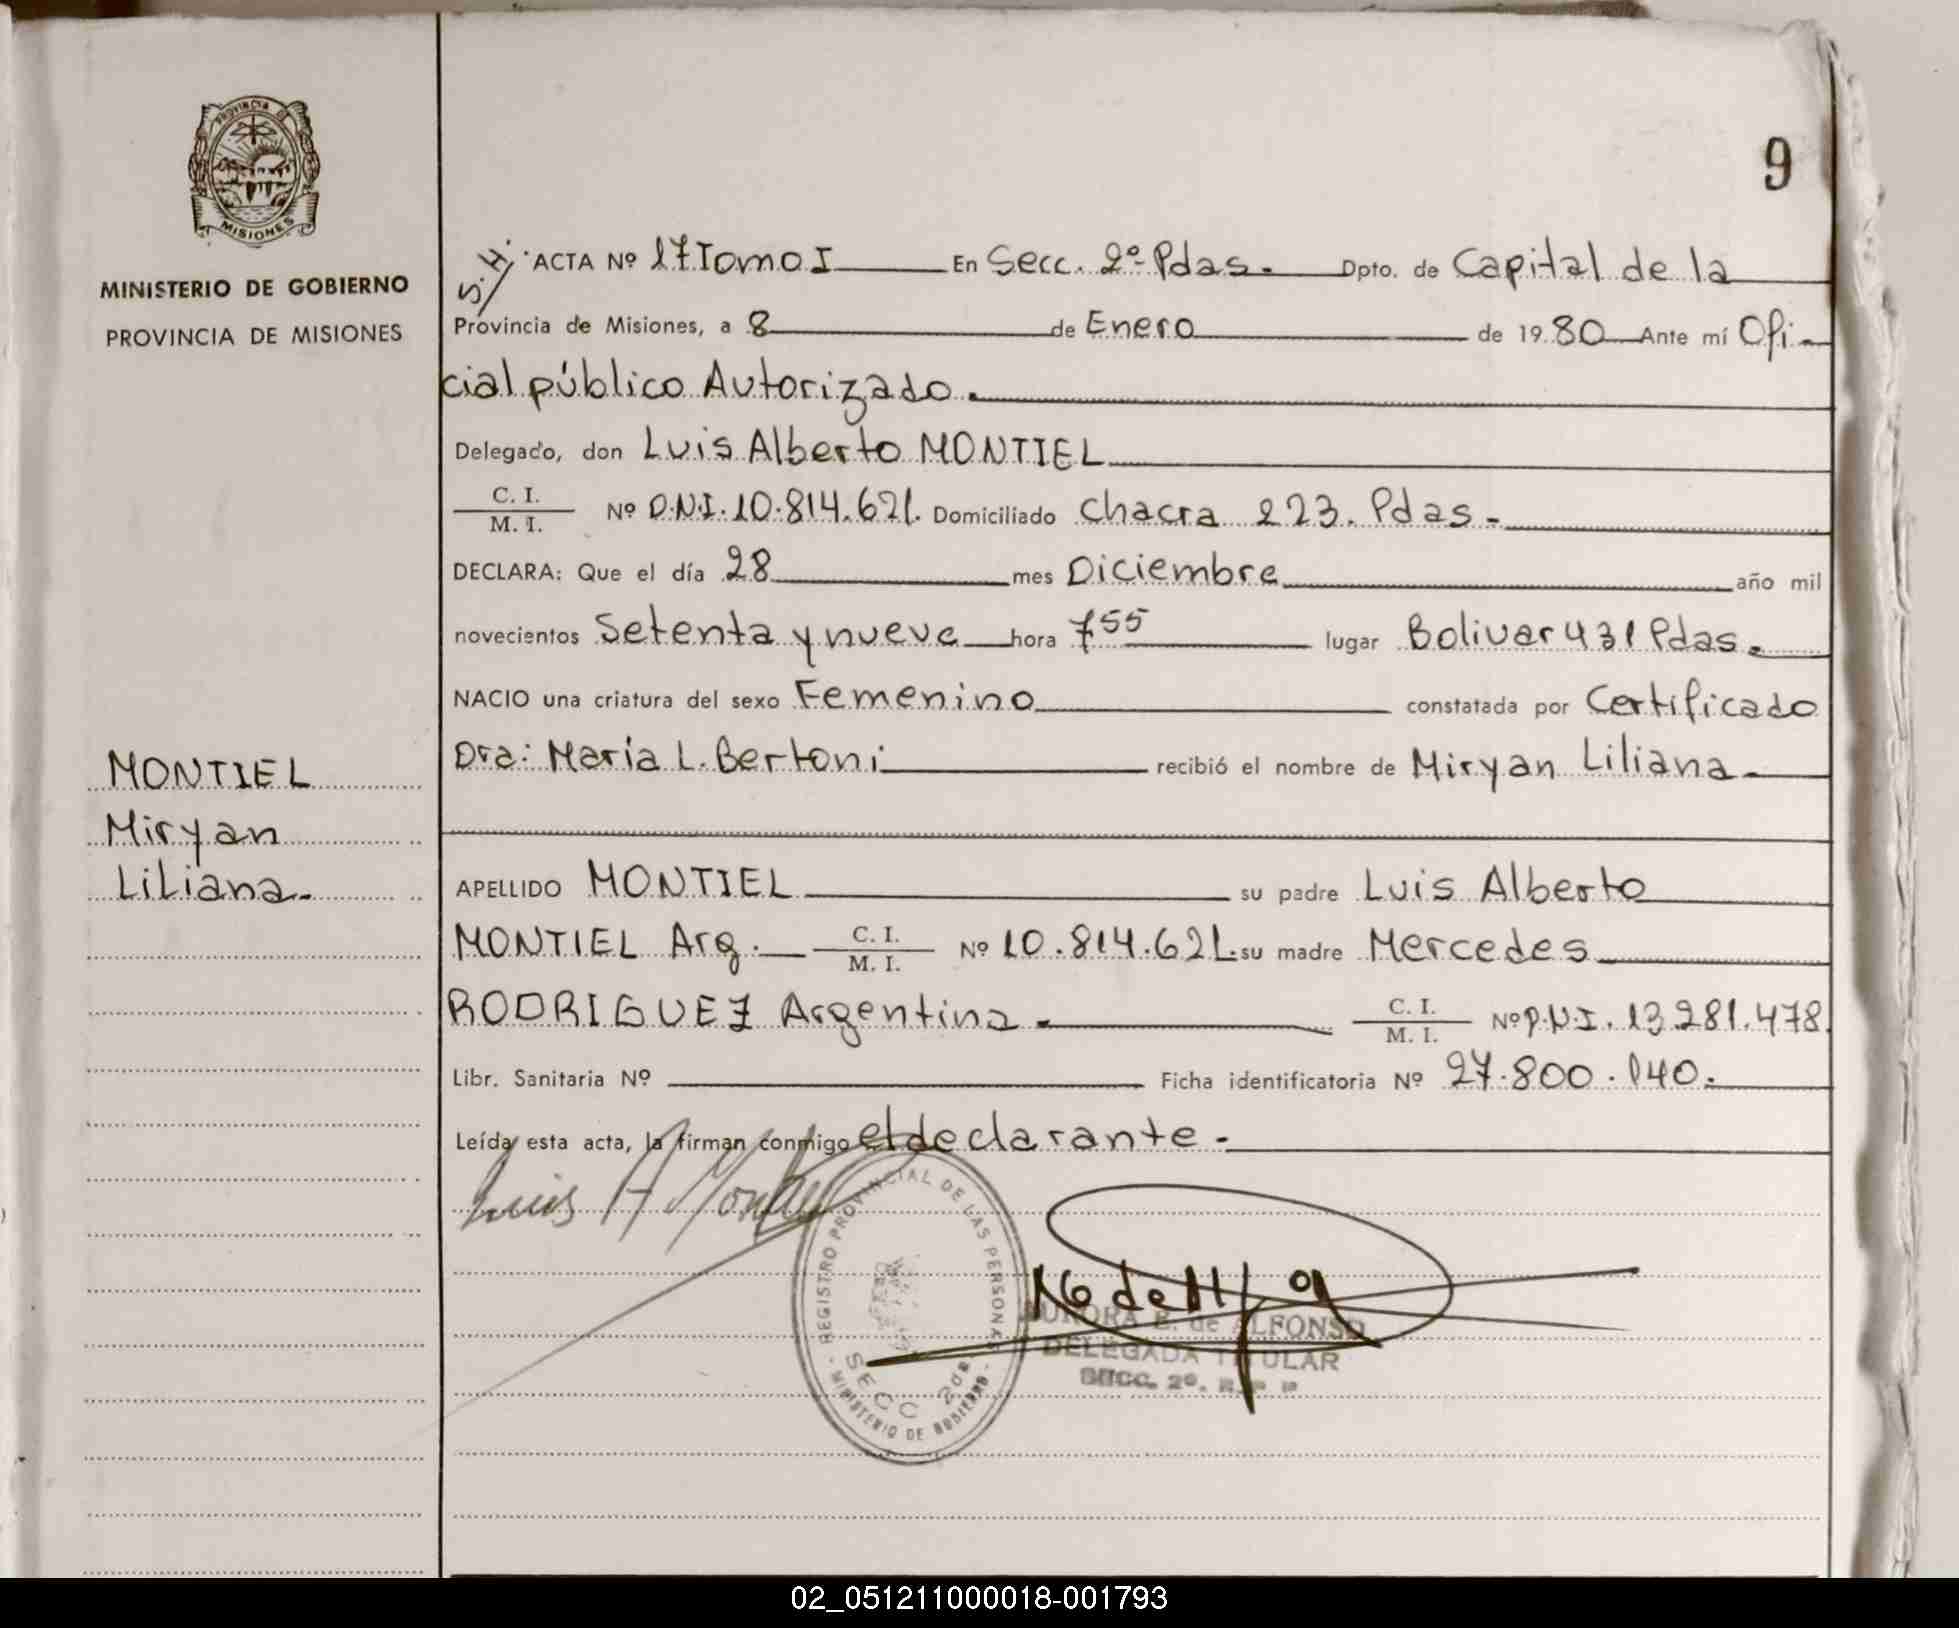 PROVINCIA DE
MISIONES
MINISTERIO DE GOBIERNO
PROVINCIA DE MISIONES
MONTIEL
Miryan
Liliana.
9
S.H. ACTA Nº 17 Tomo I En Secc. 2º Pdas. Dpto. de Capital de la
Provincia de Misiones, a 8 de Enero de 1980 Ante mí Ofi-
cial público Autorizado.
Delegado, don Luis Alberto MONTIEL
C. I.
M. I. Nº D.N.I. 10.814.621. Domiciliado Chacra 223. Pdas.
DECLARA: Que el día 28 mes Diciembre año mil
novecientos Setenta y nueve hora 7 55 lugar Bolivar 431 Pdas.
NACIO una criatura del sexo Femenino constatada por Certificado
Dra: María L. Bertoni recibió el nombre de Miryan Liliana
APELLIDO MONTIEL su padre Luis Alberto
MONTIEL Arg. C. I. M. I. Nº 10.814.621. su madre Mercedes
RODRIGUEZ Argentina C. I. M. I. Nº D.N.I. 13.281.478
Libr. Sanitaria Nº Ficha identificatoria Nº 27.800.140.
Leída esta acta, la firman conmigo el declarante.
Luis A Montiel
REGISTRO PROVINCIAL DE LAS PERSONAS
SECC 2da
MINISTERIO DE GOBIERNO
AURORA B. de ALFONSO
DELEGADA TITULAR
SECC. 2º.
02_051211000018-001793